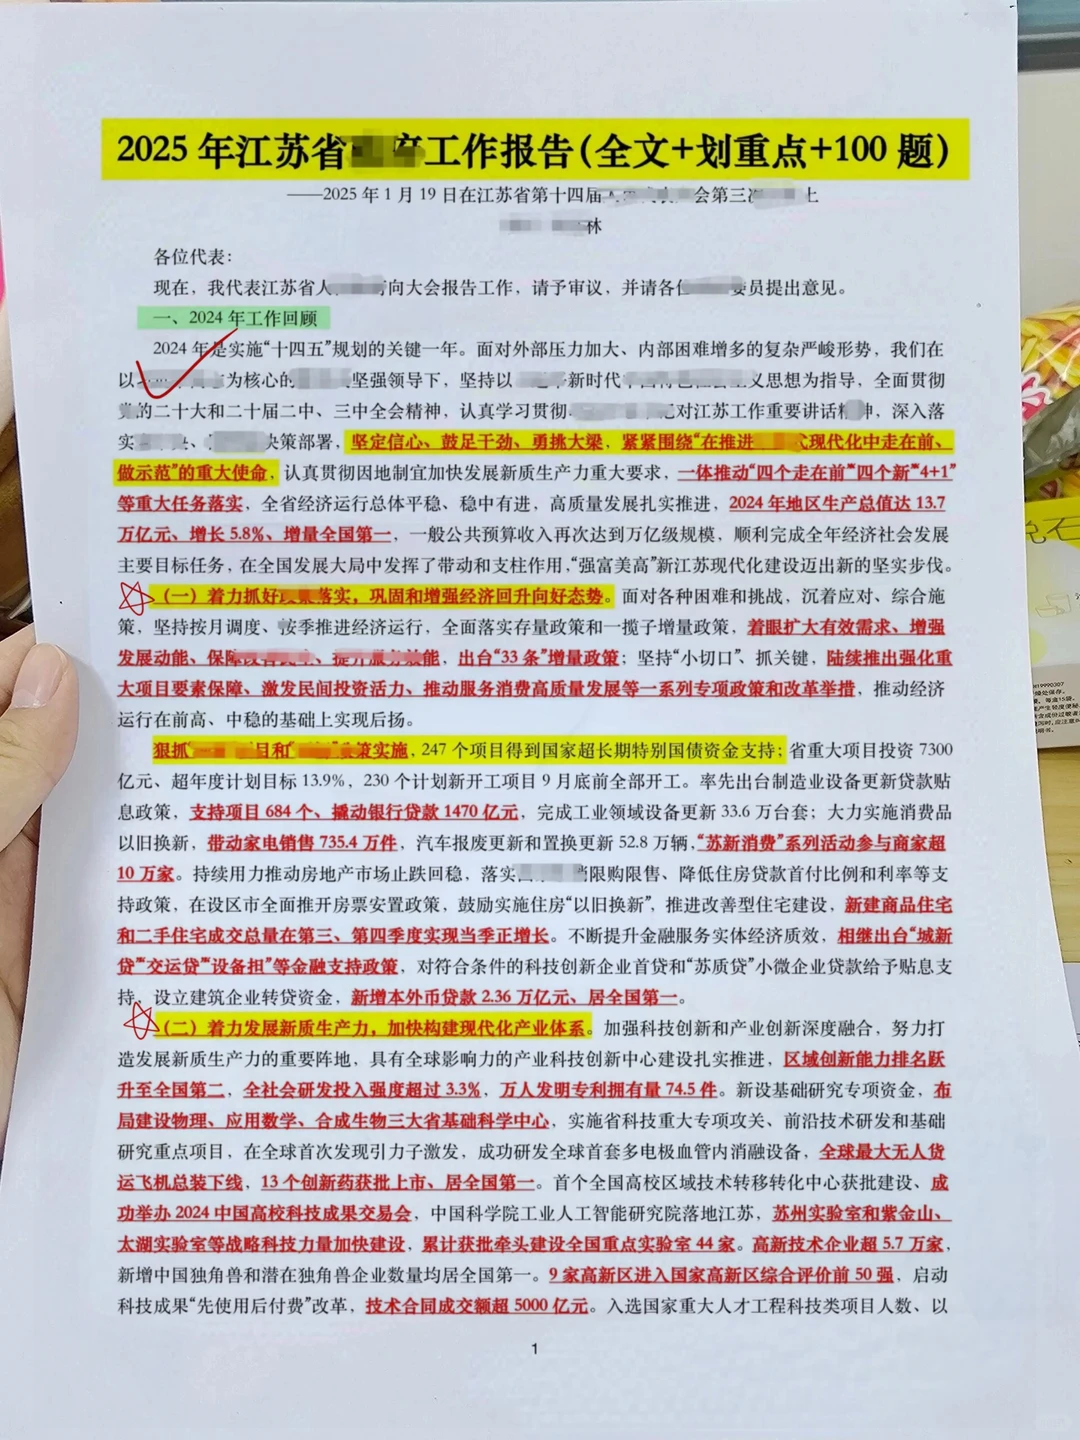 2025 年江苏省 工作报告(全文+划重点+100 题)
——2025 年 1 月 19 日在江苏省第十四届 会第三 上
林
各位代表:
现在,我代表江苏省人 向大会报告工作,请予审议,并请各位 委员提出意见。
一、2024 年工作回顾
2024 年是实施“十四五”规划的关键一年。面对外部压力加大、内部困难增多的复杂严峻形势,我们在
以 为核心的 坚强领导下,坚持以 新时代 义思想为指导,全面贯彻
的二十大和二十届二中、三中全会精神,认真学习贯彻 对江苏工作重要讲话 ,深入落
实 决策部署,坚定信心、鼓足干劲、勇挑大梁,紧紧围绕“在推进 式现代化中走在前、
做示范”的重大使命,认真贯彻因地制宜加快发展新质生产力重大要求,一体推动“四个走在前”“四个新”“4+1”
等重大任务落实,全省经济运行总体平稳、稳中有进,高质量发展扎实推进,2024 年地区生产总值达 13.7
万亿元、增长 5.8%、增量全国第一,一般公共预算收入再次达到万亿级规模,顺利完成全年经济社会发展
主要目标任务,在全国发展大局中发挥了带动和支柱作用,“强富美高”新江苏现代化建设迈出新的坚实步伐。
(一)着力抓好 落实,巩固和增强经济回升向好态势。面对各种困难和挑战,沉着应对、综合施
策,坚持按月调度、按季推进经济运行,全面落实存量政策和一揽子增量政策,着眼扩大有效需求、增强
发展动能、保障 、提升服务效能,出台“33 条”增量政策;坚持“小切口”、抓关键,陆续推出强化重
大项目要素保障、激发民间投资活力、推动服务消费高质量发展等一系列专项政策和改革举措,推动经济
运行在前高、中稳的基础上实现后扬。
狠抓 目和 政策实施,247 个项目得到国家超长期特别国债资金支持;省重大项目投资 7300
亿元、超年度计划目标 13.9%,230 个计划新开工项目 9 月底前全部开工。率先出台制造业设备更新贷款贴
息政策,支持项目 684 个、撬动银行贷款 1470 亿元,完成工业领域设备更新 33.6 万台套;大力实施消费品
以旧换新,带动家电销售 735.4 万件,汽车报废更新和置换更新 52.8 万辆,“苏新消费”系列活动参与商家超
10 万家。持续用力推动房地产市场止跌回稳,落实 限购限售、降低住房贷款首付比例和利率等支
持政策,在设区市全面推开房票安置政策,鼓励实施住房“以旧换新”,推进改善型住宅建设,新建商品住宅
和二手住宅成交总量在第三、第四季度实现当季正增长。不断提升金融服务实体经济质效,相继出台“城新
贷”“交运贷”“设备担”等金融支持政策,对符合条件的科技创新企业首贷和“苏质贷”小微企业贷款给予贴息支
持,设立建筑企业转贷资金,新增本外币贷款 2.36 万亿元、居全国第一。
(二)着力发展新质生产力,加快构建现代化产业体系。加强科技创新和产业创新深度融合,努力打
造发展新质生产力的重要阵地,具有全球影响力的产业科技创新中心建设扎实推进,区域创新能力排名跃
升至全国第二,全社会研发投入强度超过 3.3%,万人发明专利拥有量 74.5 件。新设基础研究专项资金,布
局建设物理、应用数学、合成生物三大省基础科学中心,实施省科技重大专项攻关、前沿技术研发和基础
研究重点项目,在全球首次发现引力子激发,成功研发全球首套多电极血管内消融设备,全球最大无人货
运飞机总装下线,13 个创新药获批上市、居全国第一。首个全国高校区域技术转移转化中心获批建设、成
功举办 2024 中国高校科技成果交易会,中国科学院工业人工智能研究院落地江苏,苏州实验室和紫金山、
太湖实验室等战略科技力量加快建设,累计获批牵头建设全国重点实验室 44 家。高新技术企业超 5.7 万家,
新增中国独角兽和潜在独角兽企业数量均居全国第一。9 家高新区进入国家高新区综合评价前 50 强,启动
科技成果“先使用后付费”改革,技术合同成交额超 5000 亿元。入选国家重大人才工程科技类项目人数、以
1